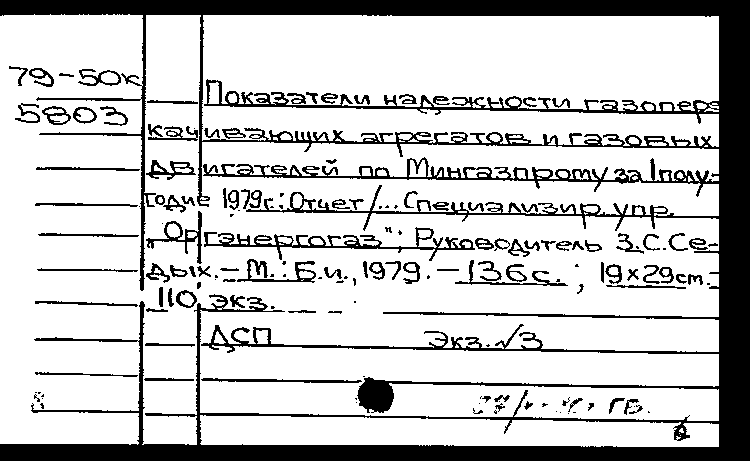 79-50к
5803
Показатели надежности газопере
качивающих агрегатов и газовых
двигателей по Мингазпрому за I полу-
годие 1979г.: Отчет /... Специализир. упр.
„Оргэнергогаз"; Руководитель З.С.Се-
дых. – М.: Б.и., 1979. – 136с.; 19×29см. –
110 экз.
ДСП Экз. √3
ГБ.